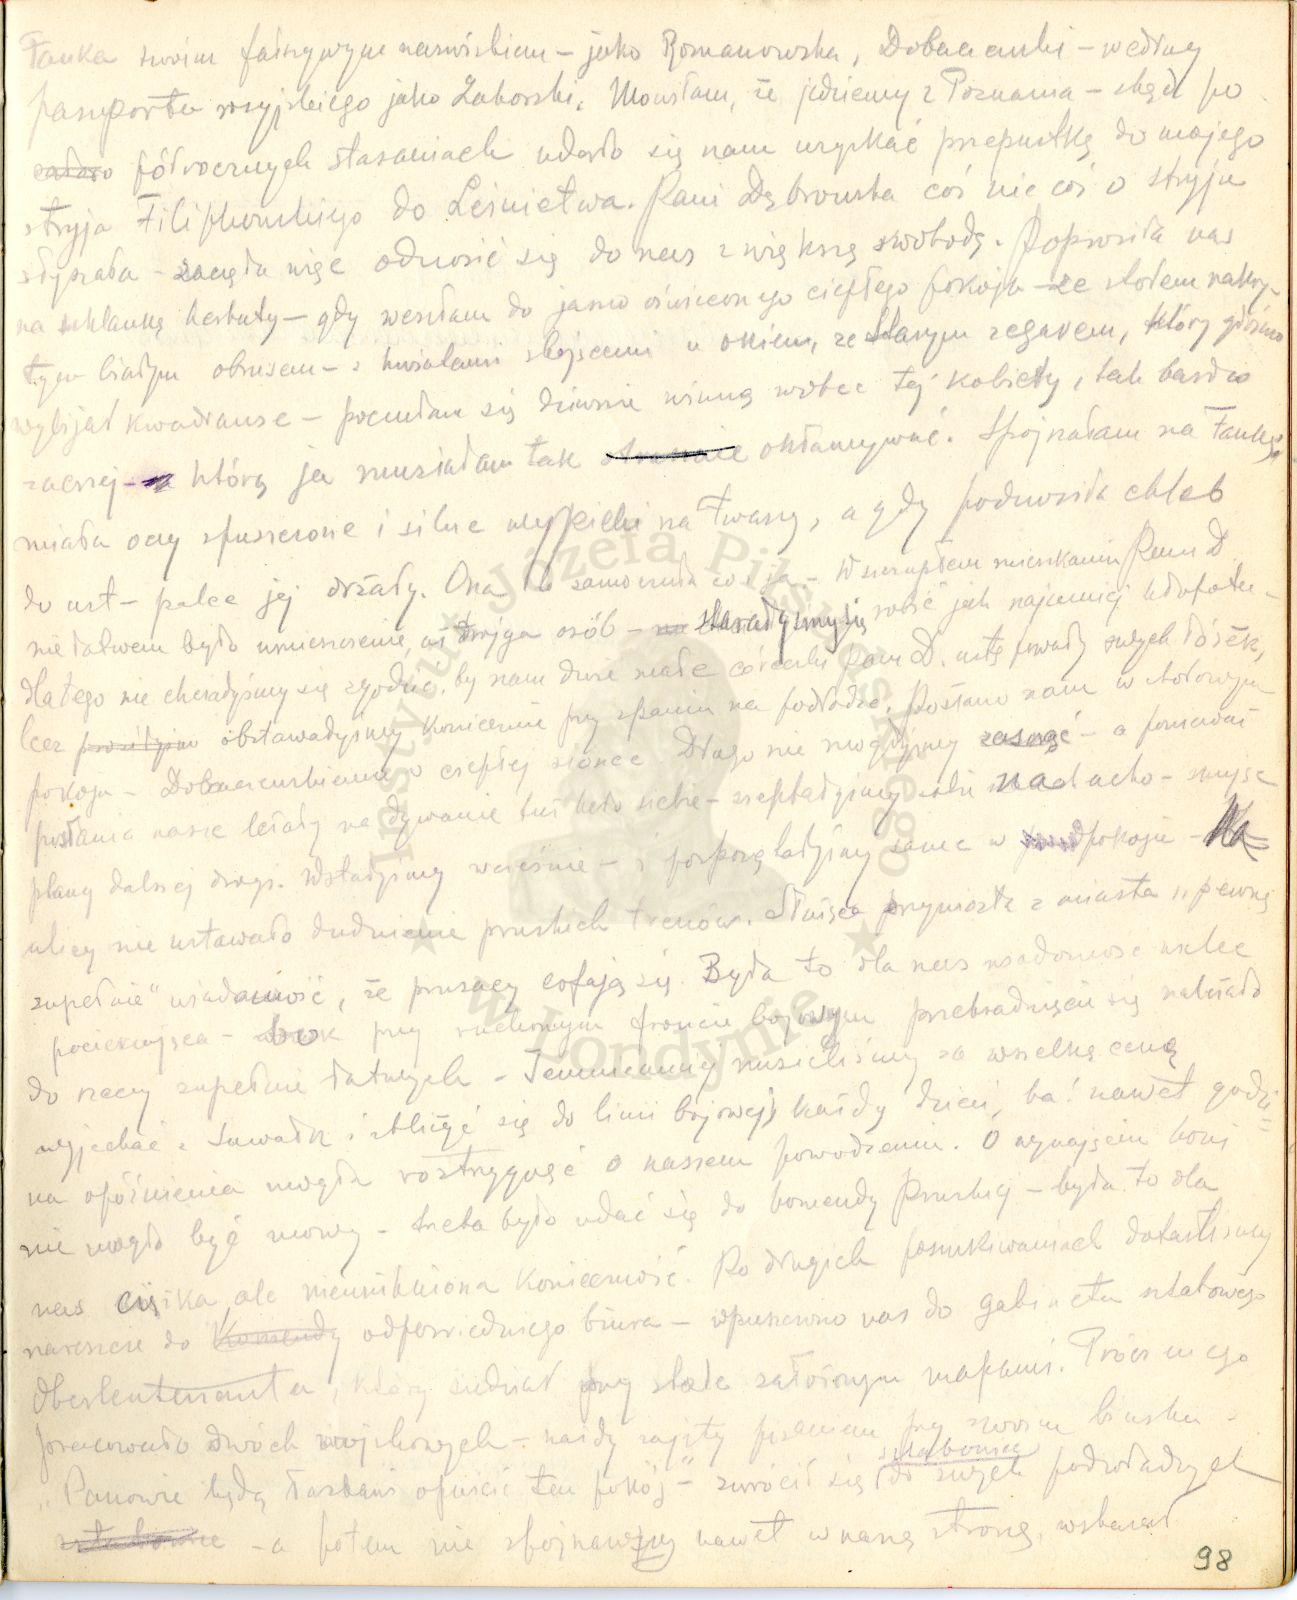 Tańka swoim fałszywym nazwiskiem – jako Romanowska, Dobaczewski – według
paszportu rosyjskiego jako Zaborski. Mówiłam, że jedziemy z Poznania – skąd po
półrocznych staraniach udało się nam uzyskać przepustkę do mojego
stryja Filipkowskiego do Leśnictwa. Pani Dąbrowska coś nie coś o stryju
słyszała – zaczęła więc odnosić się do nas z większą swobodą. Poprosiła nas
na szklankę herbaty – gdy weszłam do jasno oświeconego ciepłego pokoju – ze stołem nakry-
tym białym obrusem – z kwiatami stojącemi u okien, ze starym zegarem, który głośno
wybijał kwadranse – poczułam się dziwnie winną wobec tej kobiety, tak bardzo
zacnej – którą ja musiałam tak okłamywać. Spojrzałam na Tańkę,
miała oczy spuszczone i silne wypieki na twarzy, a gdy podnosiła chleb
do ust – palce jej drżały. Ona to samo czuła co i ja – W szczupłem mieszkaniu Pani D.
nie łatwem było umieszczenie, aż trojga osób – starałyśmy się robić jak najmniej kłopotu –
dlatego nie chciałyśmy się zgodzić, by nam dwie małe córeczki Pani D. ustępowały swych łóżek,
lecz obstawałyśmy koniecznie przy spaniu na podłodze. Posłano nam w stołowym
pokoju – Dobaczewskiemu o ciepłej sionce. Długo nie mogłyśmy zasnąć – a ponieważ
posłania nasze leżały na dywanie tuż koło siebie – szeptałyśmy sobie na ucho – snując
plany dalszej drogi. Wstałyśmy wcześnie – i posprzątałyśmy same w pokoju – Na
ulicy nie ustawało dudnienie pruskich trenów. Służąca przyniosła z miasta „pewną
zupełnie" wiadomość, że prusacy cofają się. Była to dla nas wiadomość wielce
pocieszająca – bo przy ruchomym froncie bojowym przekradnięcie się należało
do rzeczy zupełnie łatwych – Jemniemniej musieliśmy za wszelką cenę
wyjechać z Suwałk i zbliżyć się do linii bojowej, każdy dzień, ba! nawet godzi=
na opóźnienia mogła rozstrzygnąć o naszem powodzeniu. O wynajęciu koni
nie mogło być mowy – trzeba było udać się do komendy Pruskiej – była to dla
nas ciężka ale nieunikniona konieczność. Po długich poszukiwaniach dotarliśmy
nareszcie do Komendy odpowiedniego biura – wpuszczono nas do gabinetu sztabowego
Oberleutenanta, który siedział przy stole założonym mapami. Prócz niego
pracowało dwóch wojskowych – każdy zajęty pisaniem przy swoim biurku –
„Panowie będą łaskawi opuścić ten pokój" – zwrócił się do swych podwładnych
– a potem nie spojrzawszy nawet w naszą stronę, wskazał
98
Instytut Józefa Piłsudskiego
w Londynie